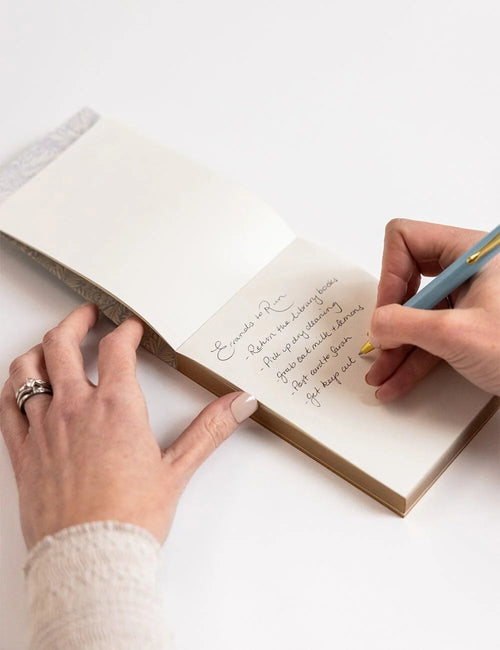 Errands to Run
- Return the library books
- Pick up dry cleaning
- Grab oat milk + lemons
- Post card to Sarah
- Get keys cut